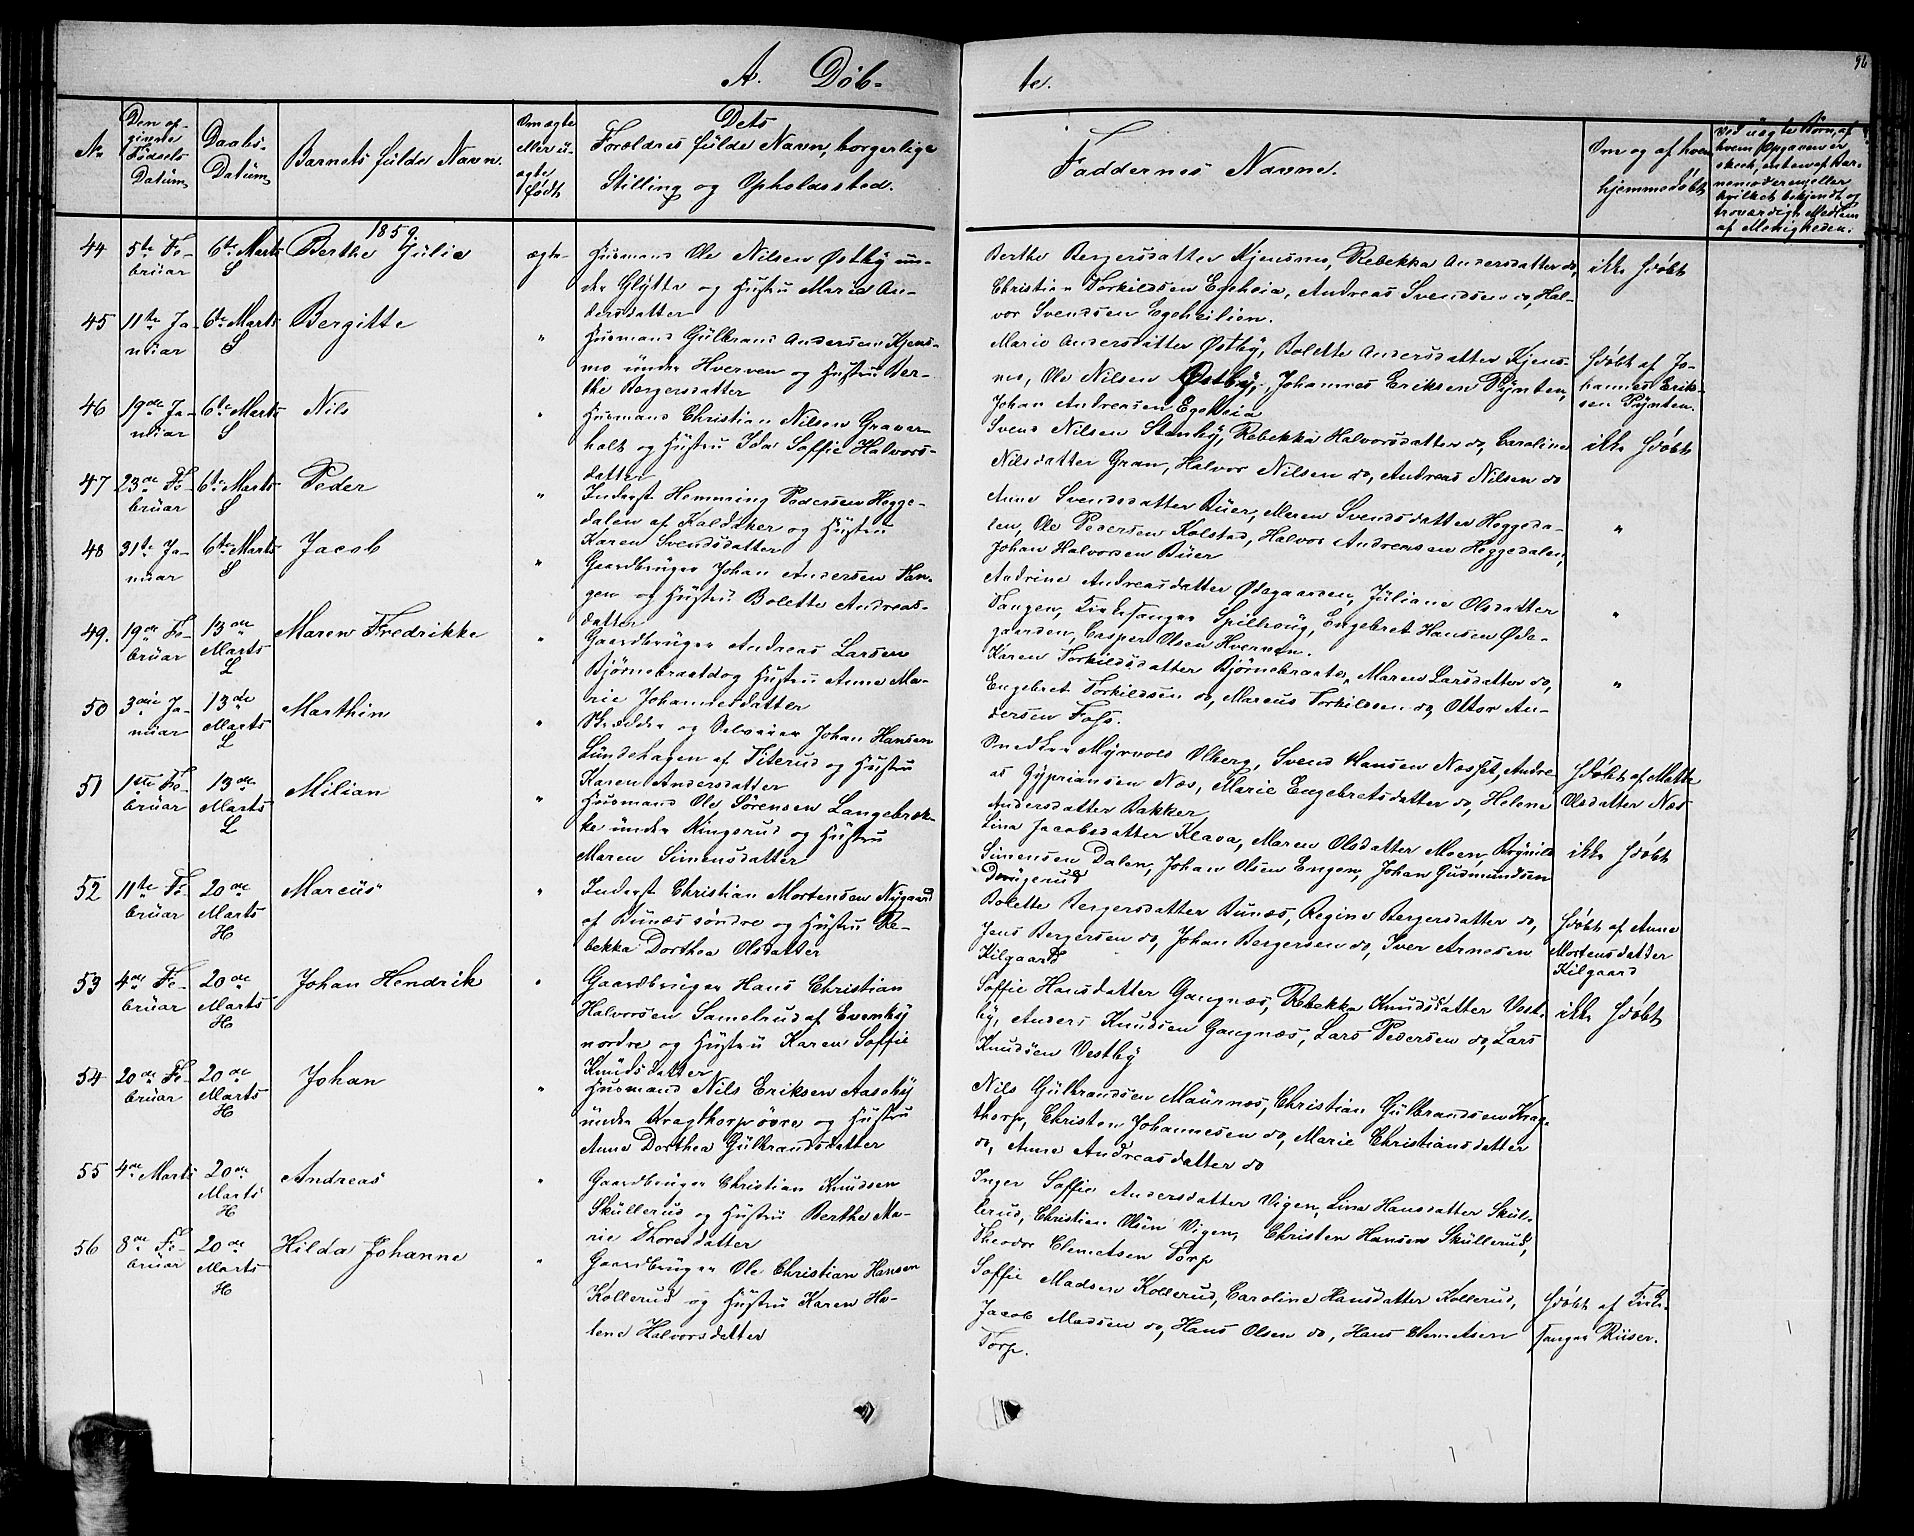 96
A. Döb-
te.
No
Den op-
givne
Fødsels
Datüm
Daabs-
Datüm
Barnets fülde Navn.
Om ægte
eller u-
ægte
født
Dets
Forældres fülde Navn, borgerlige
Stilling og Opholdssted.
Faddernes Navne.
Om og af hvem
hjemmedøbt
Ved uægte Børn, af
hvem Opgaven er
skeet, enten af Bar-
nemoderen eller
hvilket bekjendt og
troværdigt Medlem
af Menigheden.
1859.
44
5te Fe-
brüar
6te Marts
S
Berthe Jülie
ægte
Husmand Ole Nilsen Østby un-
der Glÿtte og Hustru Maria An-
dersdatter
Berthe Bergersdatter Kjensmo, Rebekka Andersdatter do,
Christian Torkildsen Egeheia, Andreas Svendsen do, Hal-
vor Svendsen Egeheilien.
ikke hdøbt
45
11te Ja-
nüar
6te Marts
S
Bergitte
"
Husmand Gülbrand Andersen Kjens-
mo ünder Hverven og Hustru Ber-
the Bergersdatter
Marie Andersdatter Østby, Bolette Andersdatter Kjens-
mo, Ole Nilsen Østby, Johannes Eriksen Pÿnten,
Johan Andreasen Egeheia
hdøbt af Jo-
hannes Erik-
sen Pÿnten.
46
19de Ja-
nüar
6te Marts
S
Nils
"
Husmand Christian Nilsen Graver-
holt og Hustru Ida Soffie Halvors-
datter
Svend Nilsen Stenby, Rebekka Halvorsdatter do, Caroline
Nilsdatter Gran, Halvor Nilsen do, Andreas Nilsen do
ikke hdøbt
47
23de Fe-
brüar
6te Marts
S
Peder
"
Inderst Hemming Pedersen Hegge-
dalen af Kaldaker og Hüstru
Karen Svendsdatter
Anne Svendsdatter Büer, Maren Svendsdatter Heggeda-
len, Ole Pedersen Kolstad, Halvor Andreasen Heggedalen,
Johan Halvorsen Büer
"
48
31te Ja-
nüar
6te Marts
S
Jacob
"
Gaardbruger Johan Andersen Tan-
gen og Hüstru Bolette Andreas-
datter
Andrine Andreasdatter Ødegaarden, Jüliane Olsdatter
Tangen, Kirkesanger Spilhoug, Engebret Hansen Øde-
gaarden, Casper Olsen Hverven.
"
49.
19de Fe-
brüar
13de
Marts
L
Maren Fredrikke
"
Gaardbruger Andreas Larsen
Bjørnebraatd og Hustru Anne Ma-
rie Johannesdatter
Karen Torkildsdatter Bjørnebraate, Maren Larsdatter do,
Engebret Torkildsen do, Marcus Torkildsen do, Ottor An-
dersen Foss.
"
50
3die Ja-
nüar
13de
Marts
L
Marthin
"
Skrædder og Selveier Johan Hansen
Lündehagen af Titerud og Hustru
Karen Andersdatter
Snedker Mÿrvold Olberg, Svend Hansen Næsset, Andre-
as Zÿpriansen Næs, Marie Engebretsdatter do, Helene
Andersdatter Bakker
hdøbt af Mathe
Olsdatter Næs
51
1ste Fe-
brüar
13de
Marts
L
Milian
"
Husmand Ole Sörensen Langebræk-
ke ünder Ringsrud og Hustru
Maren Simensdatter
Lina Jacobsdatter Klava, Maren Olsdatter Moen, Brÿnild
Simensen Dalen, Johan Olsen Engen, Johan Gudmundsen
ikke hdøbt
52
11te Fe-
brüar
20de
Marts
H
Marcüs
"
Inderst Christian Mortensen Nÿgaard
af Bunæs söndre og Hüstru Re-
bekka Dorthea Olsdatter
Bolette Bergersdatter Bunæs, Regine Bergersdatter do,
Jens Bergersen do, Johan Bergersen do, Iver Arnesen
Kilgaard
hdøbt af Anne
Mortensdatter
Kilgaard
53
4de Fe-
brüar
20de
Marts
H
Johan Hendrik
"
Gaardbruger Hans Christian
Halvorsen Samelrud af Evenby
nordre og Hüstru Karen Soffie
Knüdsdatter
Soffie Hansdatter Gangnæs, Rebekka Knudsdatter Vest-
by, Anders Knudsen Gangnæs, Lars Pedersen do, Lars
Knudsen Vestby
ikke hdøbt
54
20de Fe-
brüar
20de
Marts
H
Johan
"
Husmand Nils Eriksen Aaseby
ünder Kragthorp övre og Hustru
Anne Dorthea Gülbrandsdatter
Nils Gülbrandsen Maürnæs, Christian Gülbrandsen Krag-
thorp, Christen Johannesen do, Marie Christiansdatter
do, Anne Andreasdatter do
55
4de Marts
20de
Marts
H
Andreas
"
Gaardbruger Christian Knudsen
Sküllerud og Hustru Berthe Ma-
rie Thoresdatter
Inger Soffie Andersdatter Vigen, Lina Hansdatter Skül-
lerud, Christian Olsen Vigen, Christen Hansen Sküllerud,
Theodor Clemetsen Torp
56
8de Fe-
brüar
20de
Marts
H
Hilda Johanne
"
Gaardbruger Ole Christian Hansen
Kollerud og Hüstru Karen He-
lene Halvorsdatter
Soffie Madsen Kollerud, Caroline Hansdatter Kollerud,
Jacob Madsen do, Hans Olsen do, Hans Clemetsen
Torp.
hdøbt af Kirke-
sanger Riiser.